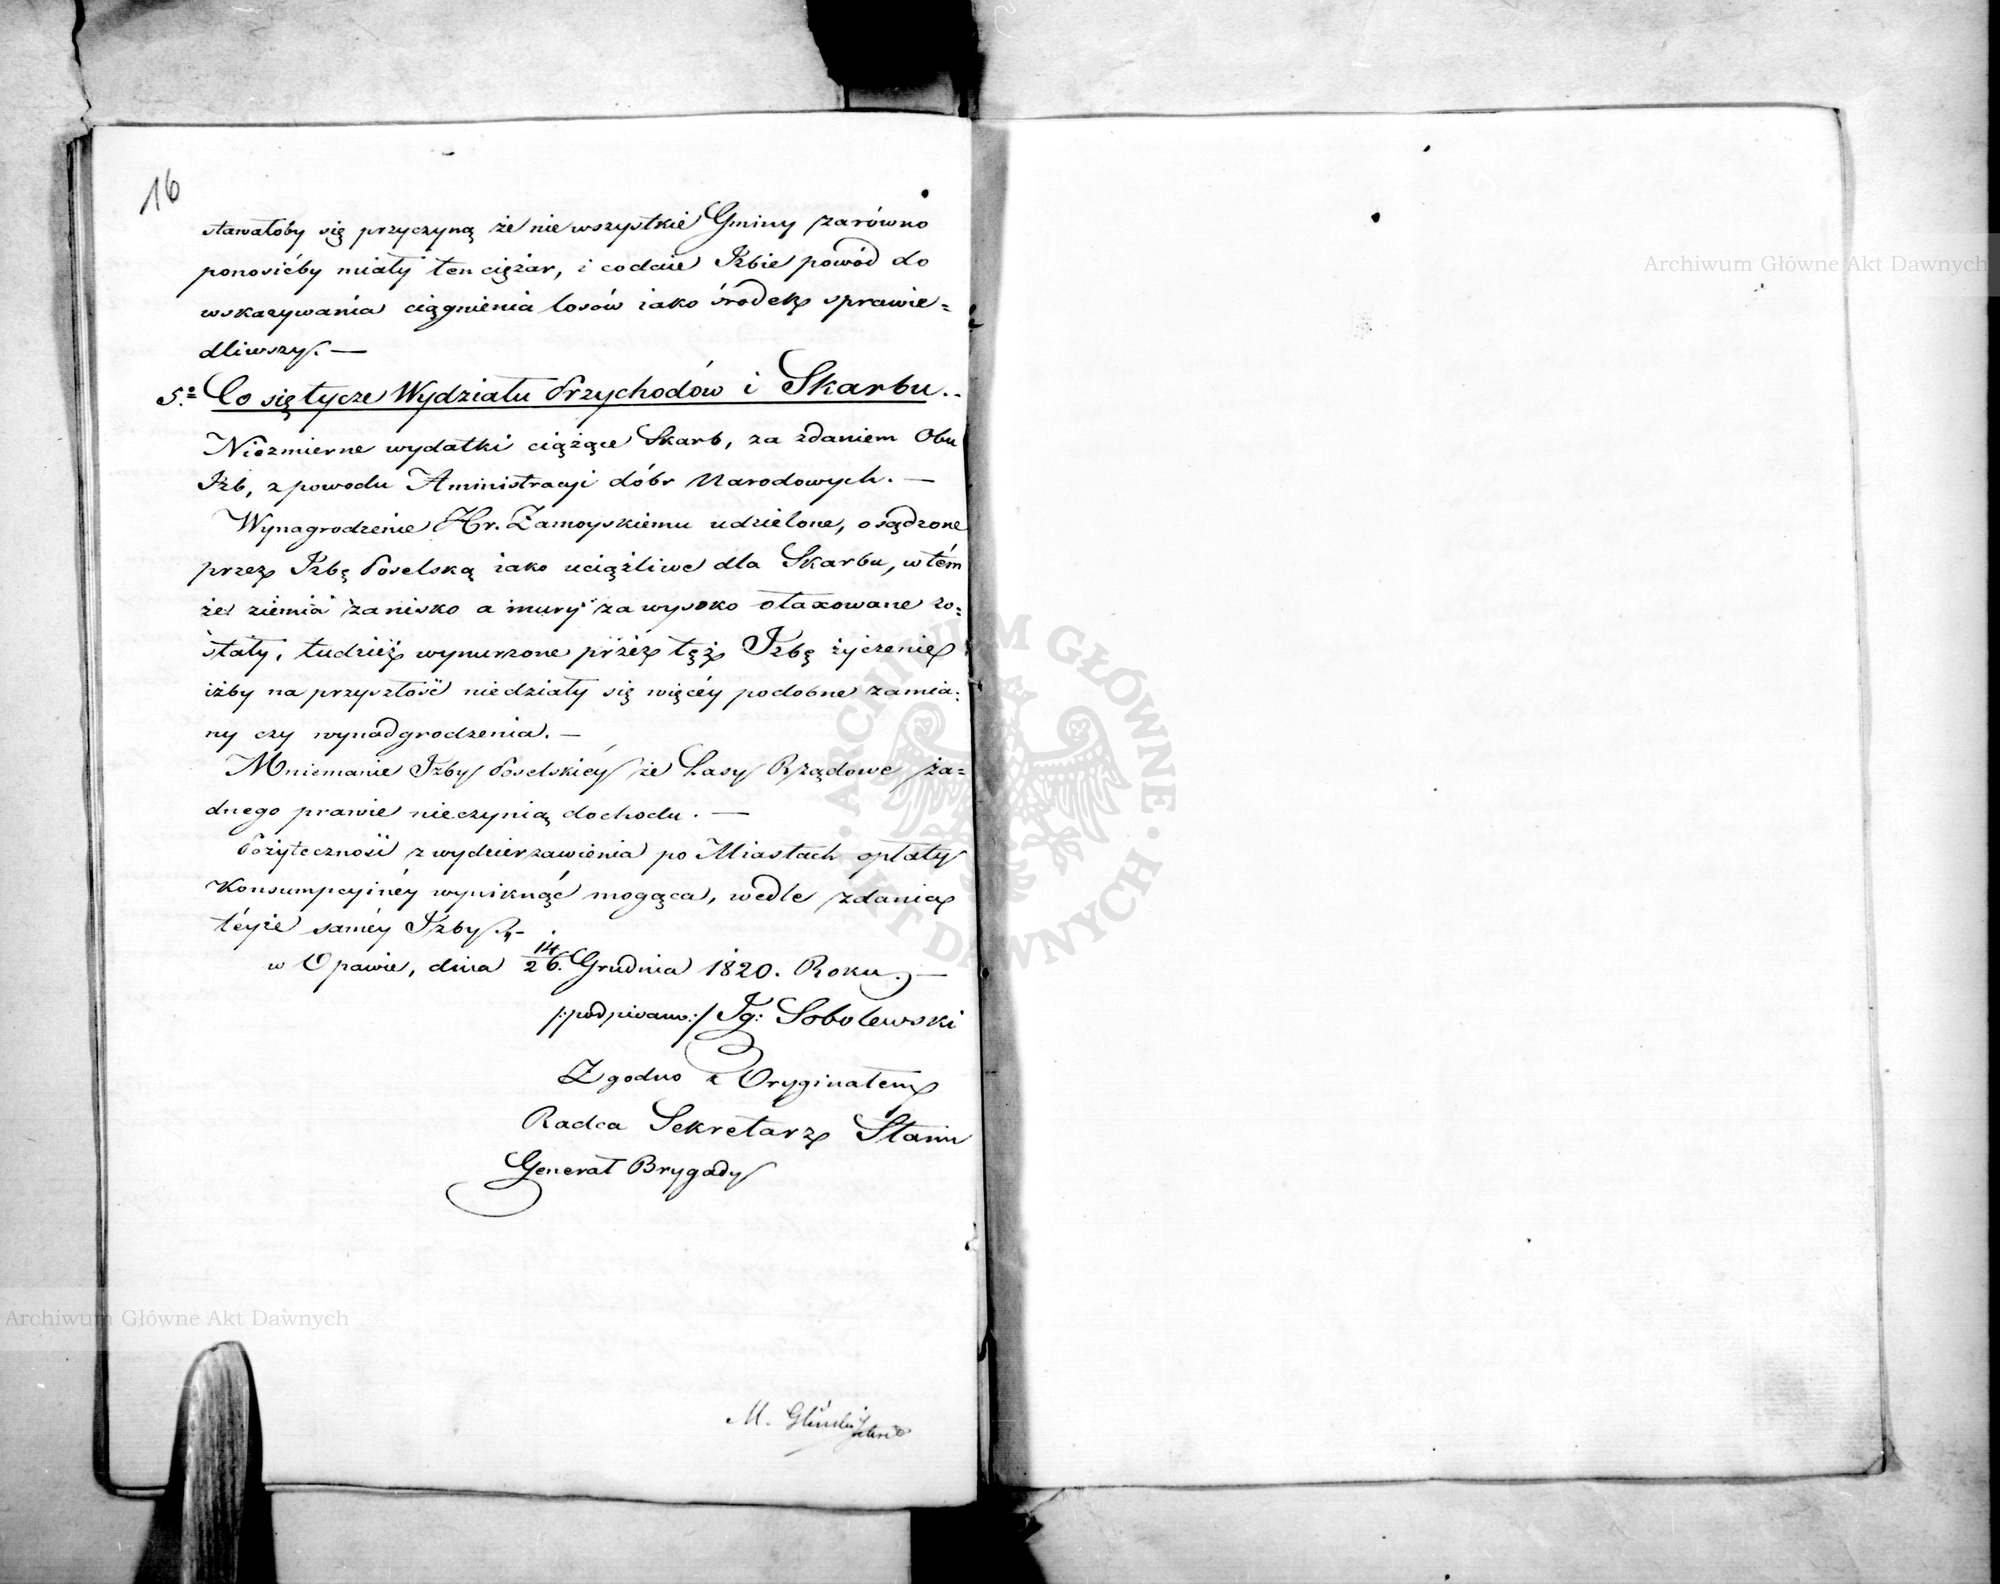 16
stawałoby się przyczyną że nie wszystkie Gminy zarówno
ponosićby miały ten ciężar, i co daie Izbie powód do
wskazywania ciągnienia losów iako środek sprawie=
dliwszy. —
5.º Co się tycze Wydziału Przychodów i Skarbu..
Niezmierne wydatki ciążące Skarb, za zdaniem Obu
Izb, z powodu Aministracyi dóbr Narodowych. —
Wynagrodzenie Hr. Zamoyskiemu udzielone, osądzone
przez Izbę Poselską iako uciążliwe dla Skarbu, w tém
że ziemia za nisko a mury za wysoko otaxowane zo=
stały, tudzież wynurzone przez tęż Izbę życzenie
iżby na przyszłość niedziały się więcéy podobne zamia=
ny czy wynadgrodzenia. —
Mniemanie Izby Poselskiéy że Lasy Rządowe ża=
dnego prawie nieczynią dochodu. —
Pożyteczność z wydzierzawienia po Miastach opłaty
Konsumpcyinéy wyniknąć mogąca, wedle zdania
téyże saméy Izby. —
w Opawie, dnia 14/26. Grudnia 1820. Roku. —
/:podpisano:/ Ig: Sobolewski
Zgodno z Oryginałem
Radca Sekretarz Stanu
Generał Brygady
M.
Archiwum Główne Akt Dawnych
Archiwum Główne Akt Dawnych
ARCHIWUM GŁÓWNE AKT DAWNYCH